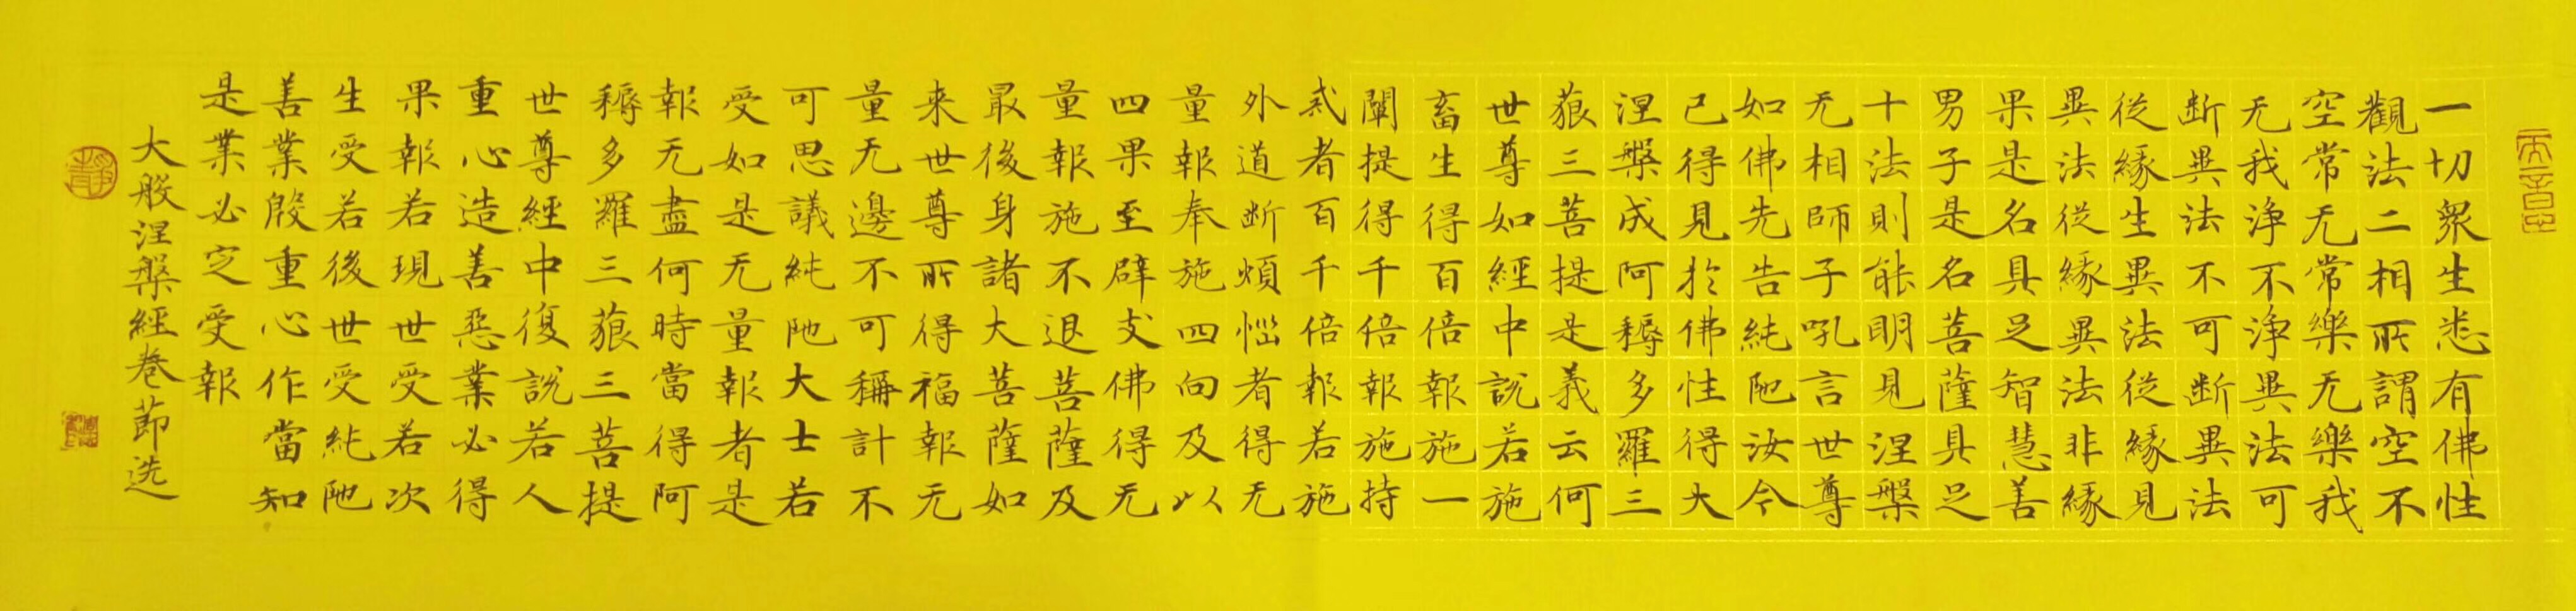 一切眾生悉有佛性
觀法二相所謂空不
空常无常樂无樂我
无我淨不淨異法可
断異法不可断異法
從緣生異法從緣見
異法從緣異法非緣
果是名具足智慧善
男子是名菩薩具足
十法則能明見涅槃
无相師子吼言世尊
如佛先告純陁汝今
已得見於佛性得大
涅槃成阿耨多羅三
藐三菩提是義云何
世尊如經中説若施
畜生得百倍報施一
闡提得千倍報施持
戒者百千倍報若施
外道断煩惱者得无
量報奉施四向及以
四果至辟支佛得无
量報施不退菩薩及
最後身諸大菩薩如
来世尊所得福報无
量无邊不可稱計不
可思議純陁大士若
受如是无量報者是
報无盡何時當得阿
耨多羅三藐三菩提
世尊經中復説若人
重心造善惡業必得
果報若現世受若次
生受若後世受純陁
善業殷重心作當知
是業必定受報
大般涅槃經卷節选
靜